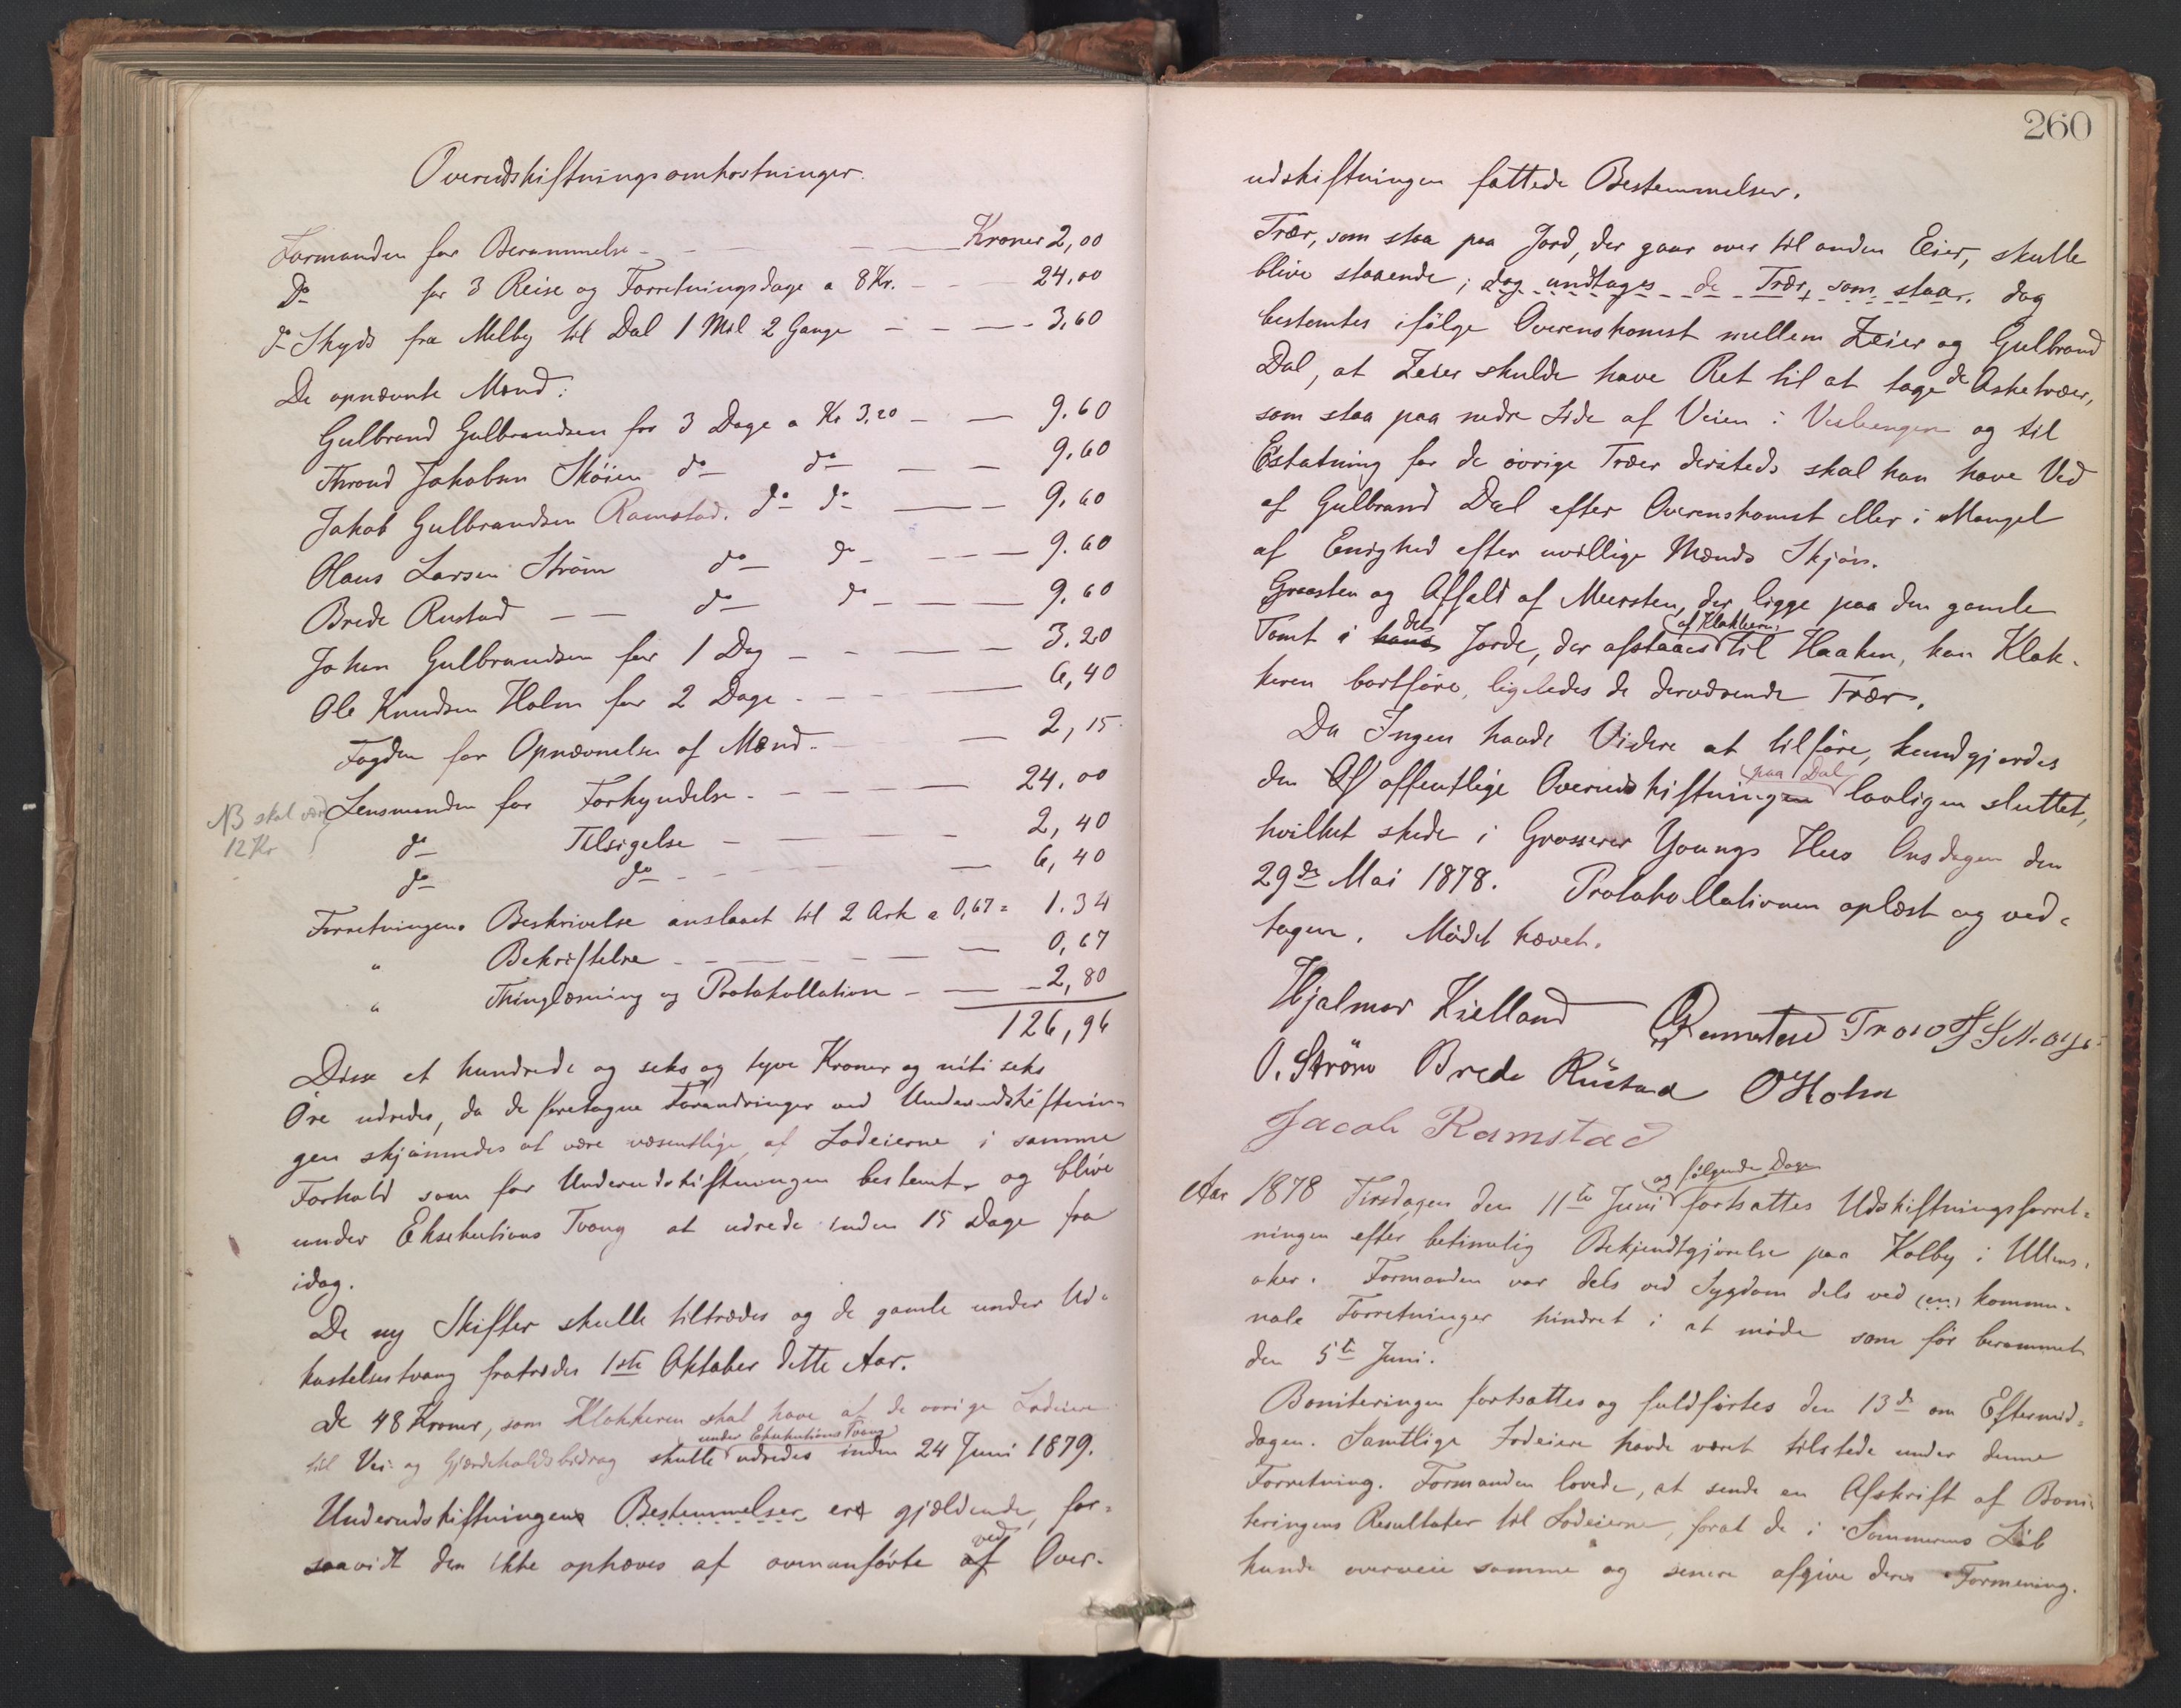 Overudskiftningsomkostninger.
Formanden for Berammelse - - - - Kroner 2,00
Do for 3 Reise og Forretningsdage a 8 Kr. - - 24.00
do Skyds fra Melby til Dal 1 Mil 2 Gange - - - 3,60
De opnævnte Mænd:
Gulbrand Gulbrandsen for 3 Dage a Kr 3,20 - - 9.60
Thrond Jakobsen Sköien do do - - 9.60
Jakob Gulbrandsen Ramstad. do do - - 9.60
Olaus Larsen Ström do do - - - 9.60
Brede Rustad - - do do - - - 9.60
Johan Gulbrandsen for 1 Dag - - - - 3.20
Ole Knudsen Holm for 2 Dage - - - 6,40
Fogden for Opnævnelse af Mænd - - 2,15
NB skal være
12 Kr
Lensmanden for Forkyndelse - - - - 24.00
do Tilsigelse - - - - 2,40
do do - - - - 6,40
Forretningens Beskrivelse anslaaet til 2 Ark a 0,67 = 1.34
" Bekræftelse - - - - - 0,67
" Thinglæsning og Protokollation - - - 2,80
126,96
Disse et hundrede og seks og tyve Kroner og niti seks
Öre udredes, da de foretagne Forandringer ved Underudskiftnin-
gen skjönnedes at være væsentlige, af Lodeierne i samme
Forhold som for Underudskiftningen bestemt, og blive
under Eksekutions Tvang at udrede inden 15 Dage fra
idag.
De ny Skifter skulle tiltrædes og de gamle under Ud-
kastelsestvang fratrædes 1ste Oktober dette Aar.
De 48 Kroner, som Klokkeren skal have af de övrige Lodeiere
under Eksekutions Tvang
til Vei- og Gjærdeholdsbidrag skulle udredes inden 24 Juni 1879.
Underudskiftningens Bestemmelser ere gjældende, for-
ved
saavidt den ikke ophæves af ovenanförte af Over-
260
udskiftningen fattede Bestemmelser.
Trær, som staa paa Jord, der gaar over til anden Eier, skulle
blive staaende; dog undtages de Trær, som staar. dog
bestemtes ifölge Overenskomst mellem Zeier og Gulbrand
Dal, at Zeier skulde have Ret til at tage de Asketræer,
som staa paa nedre Side af Veien i Veslengen og til
Erstatning for de övrige Træer dersteds skal han have Ved
af Gulbrand Dal efter Overenskomst eller i Mangel
af Enighed efter uvillige Mænds Skjön.
Graasten og Affald af Mursten, der ligge paa den gamle
det af Klokkeren
Tomt i hans Jorde, der afstaaes til Haaken, kan Klok-
keren bortföre, ligeledes de derværende Trær.
Da Ingen havde Videre at tilföre, kundgjordes
paa Dal
den Of offentlige Overudskiftningen lovligen sluttet,
hvilket skede i Grosserer Youngs Hus Onsdagen den
29de Mai 1878. Protokollationen oplæst og ved-
tagen. Mödet hævet.
Hjalmar Kielland Ramstad Tron J Skoyen
O. Ström Brede Rustad O Holm
Jacob Ramstad
og fölgende Dage
Aar 1878 Tirsdagen den 11te Juni fortsattes Udskiftningsforret-
ningen efter betimelig Bekjendtgjörelse paa Kolby i Ullens-
aker. Formanden var dels ved Sygdom dels ved (en) kommu-
nale Forretninger hindret i at möde som för berammet
den 5te Juni.
Boniteringen fortsattes og fuldförtes den 13de om Eftermid-
dagen. Samtlige Lodeiere havde været tilstede under denne
Forretning. Formanden lovede, at sende en Afskrift af Boni-
teringens Resultater til Lodeierne, forat de i Sommerens Löb
kunde overveie samme og senere afgive deres Formening.